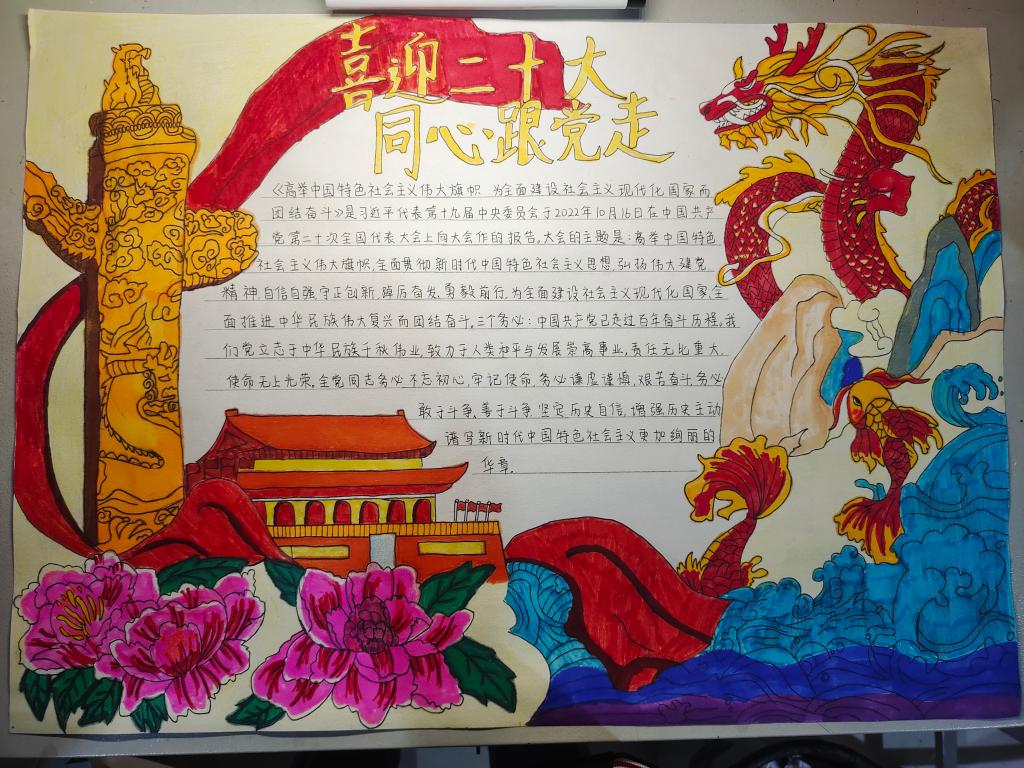 喜迎二十大
同心跟党走
《高举中国特色社会主义伟大旗帜 为全面建设社会主义现代化国家而
团结奋斗》是习近平代表第十九届中央委员会于2022年10月16日在中国共产
党第二十次全国代表大会上向大会作的报告,大会的主题是:高举中国特色
社会主义伟大旗帜,全面贯彻新时代中国特色社会主义思想,弘扬伟大建党
精神,自信自强,守正创新,踔厉奋发,勇毅前行,为全面建设社会主义现代化国家,全
面推进中华民族伟大复兴而团结奋斗,三个务必:中国共产党已走过百年奋斗历程。我
们党立志于中华民族千秋伟业,致力于人类和平与发展崇高事业,责任无比重大,
使命无上光荣,全党同志务必不忘初心,牢记使命,务必谦虚谨慎,艰苦奋斗,务必
敢于斗争,善于斗争,坚定历史自信,增强历史主动
谱写新时代中国特色社会主义更加绚丽的
华章.